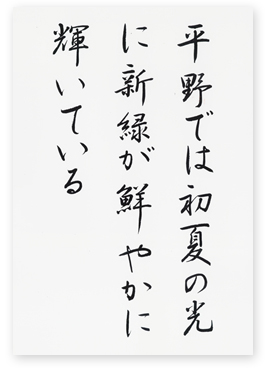 平野では初夏の光
に新緑が鮮やかに
輝いている